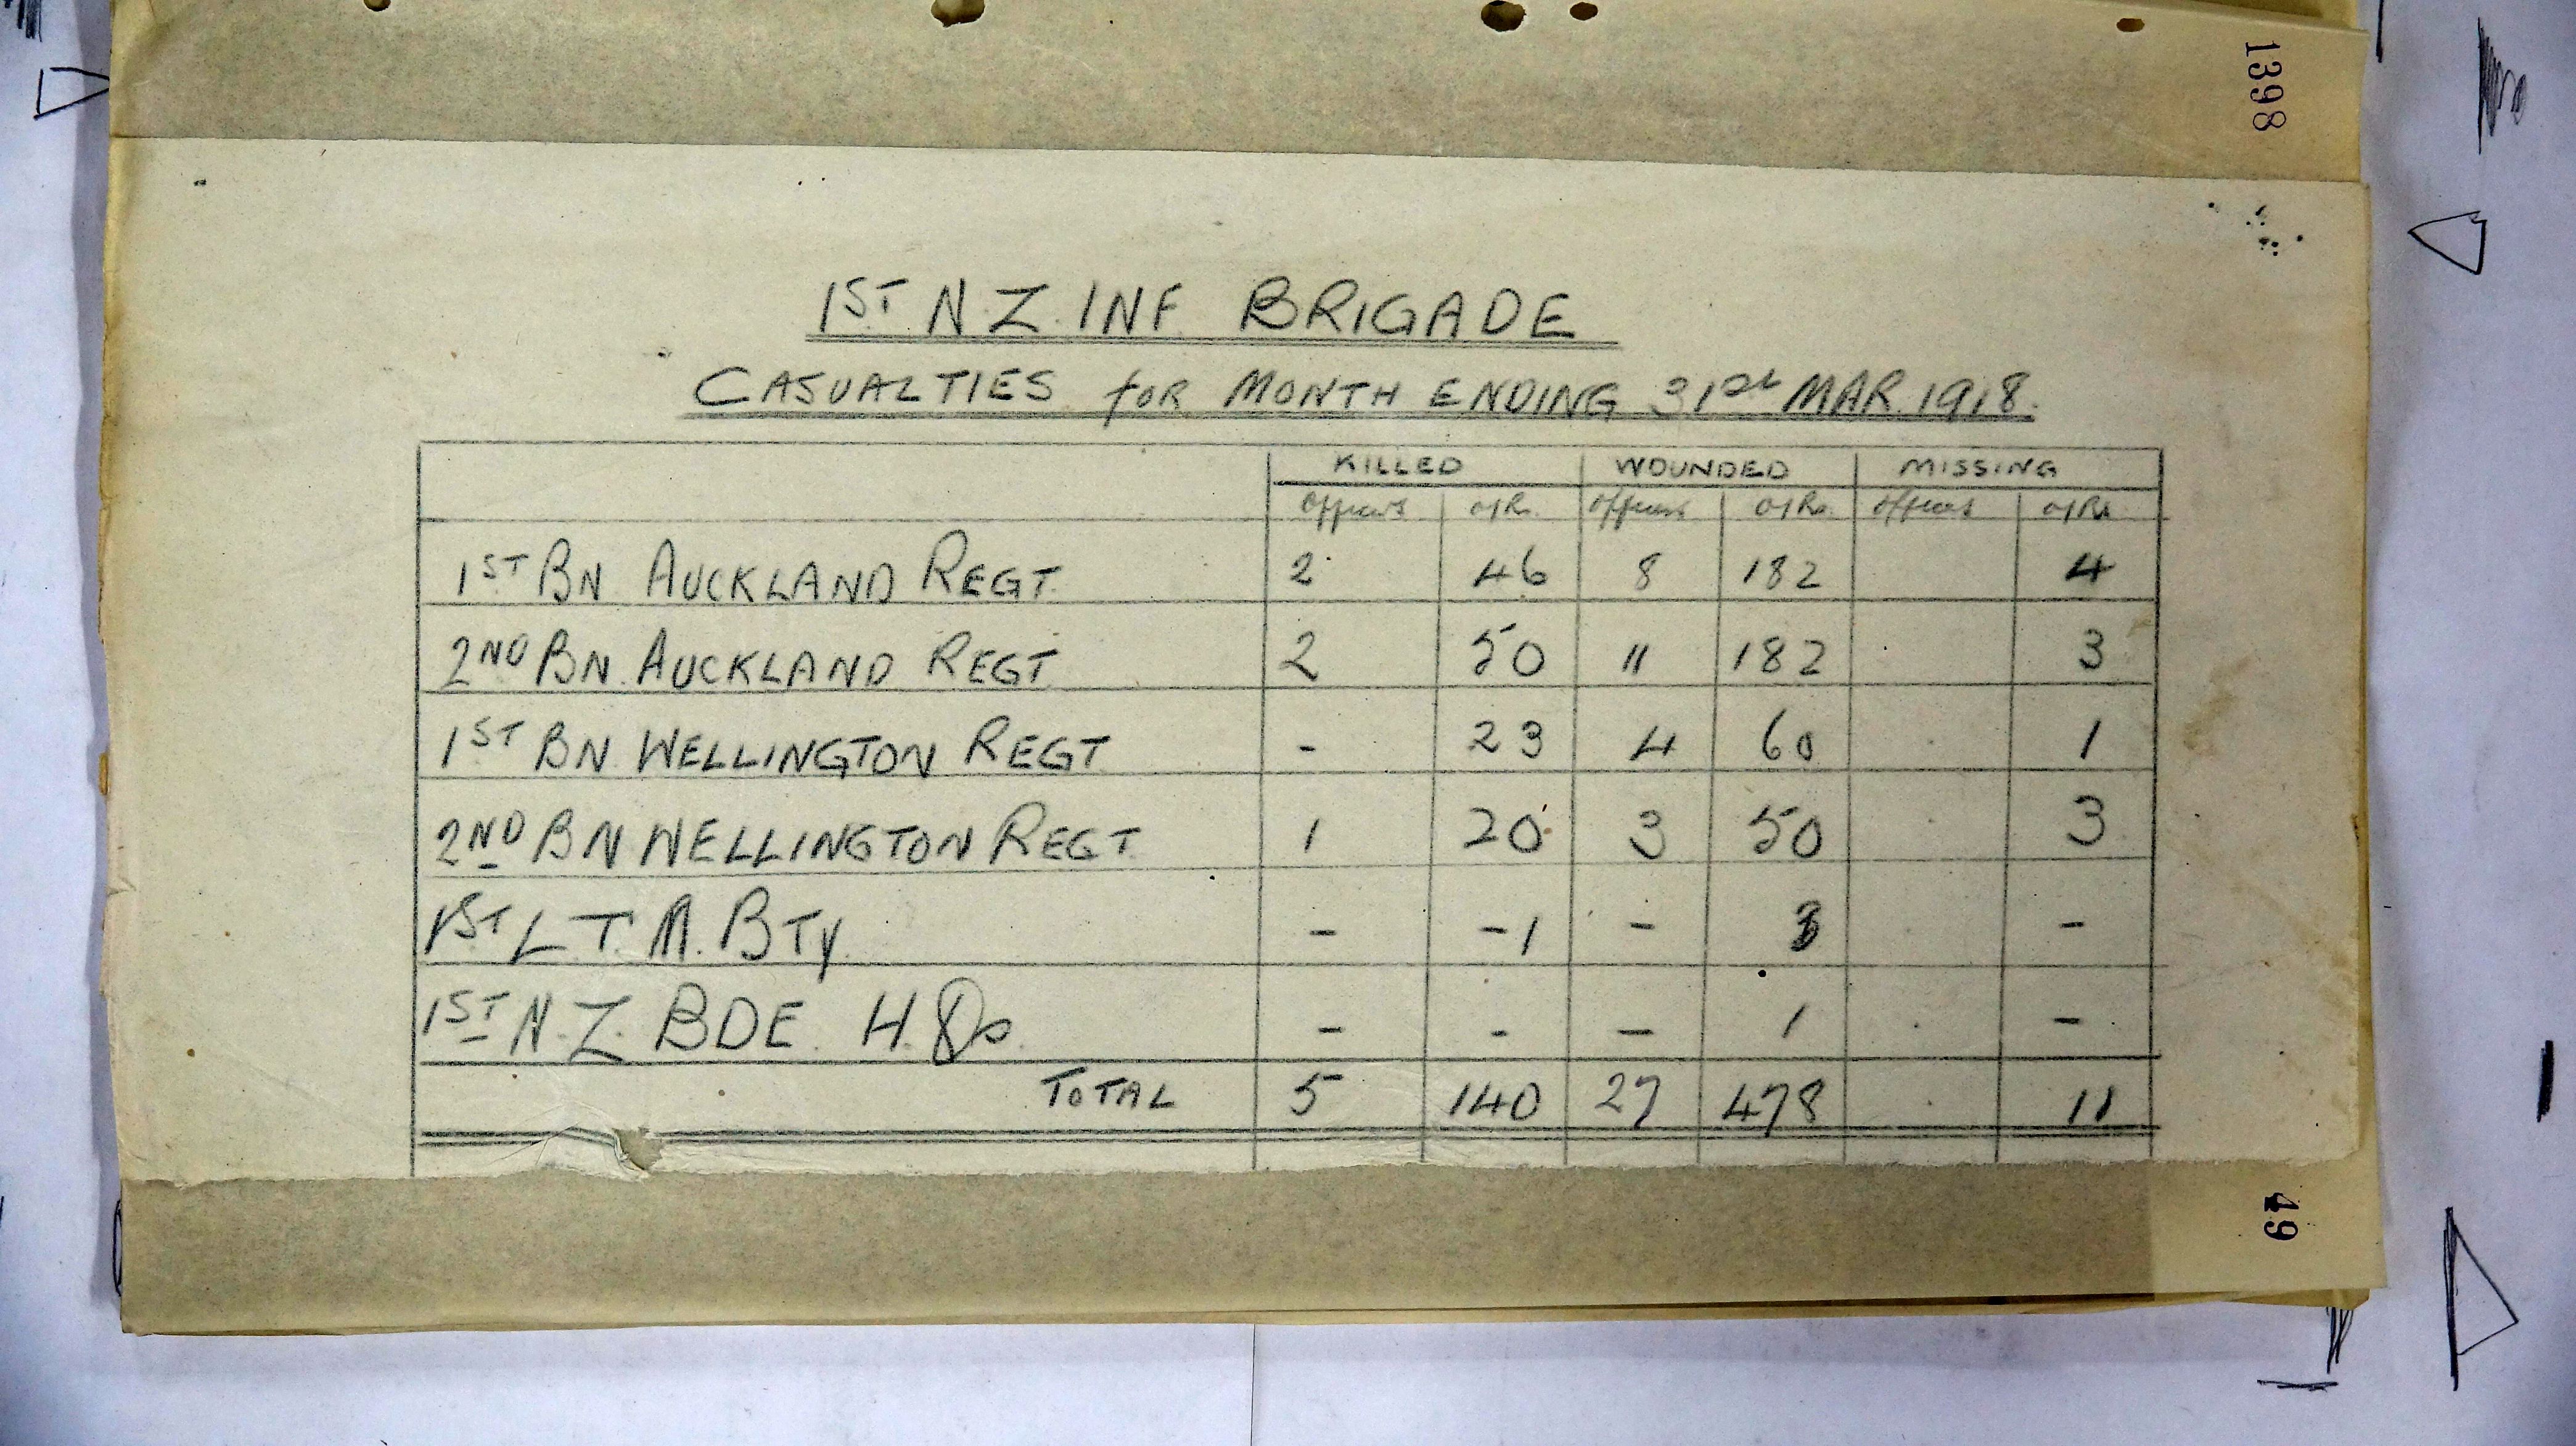 1398
1ST N.Z. INF BRIGADE
CASUALTIES for MONTH ENDING 31st MAR. 1918.
KILLED WOUNDED MISSING
Officers O/Rs. Officers O/Rs. Officers O/Rs
1ST BN AUCKLAND REGT. 2 46 8 182 4
2ND BN. AUCKLAND REGT 2 50 11 182 3
1ST BN WELLINGTON REGT - 23 4 60 1
2ND BN WELLINGTON REGT 1 20 3 50 3
1ST L.T.M. BTY. - -1 - 3 -
1ST N.Z. BDE. H.Qs. - - - 1 -
TOTAL 5 140 27 478 11
49